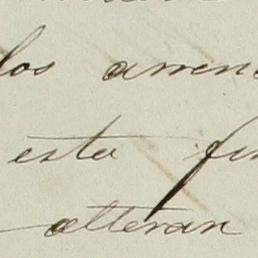 los arren
esta fin
alteran